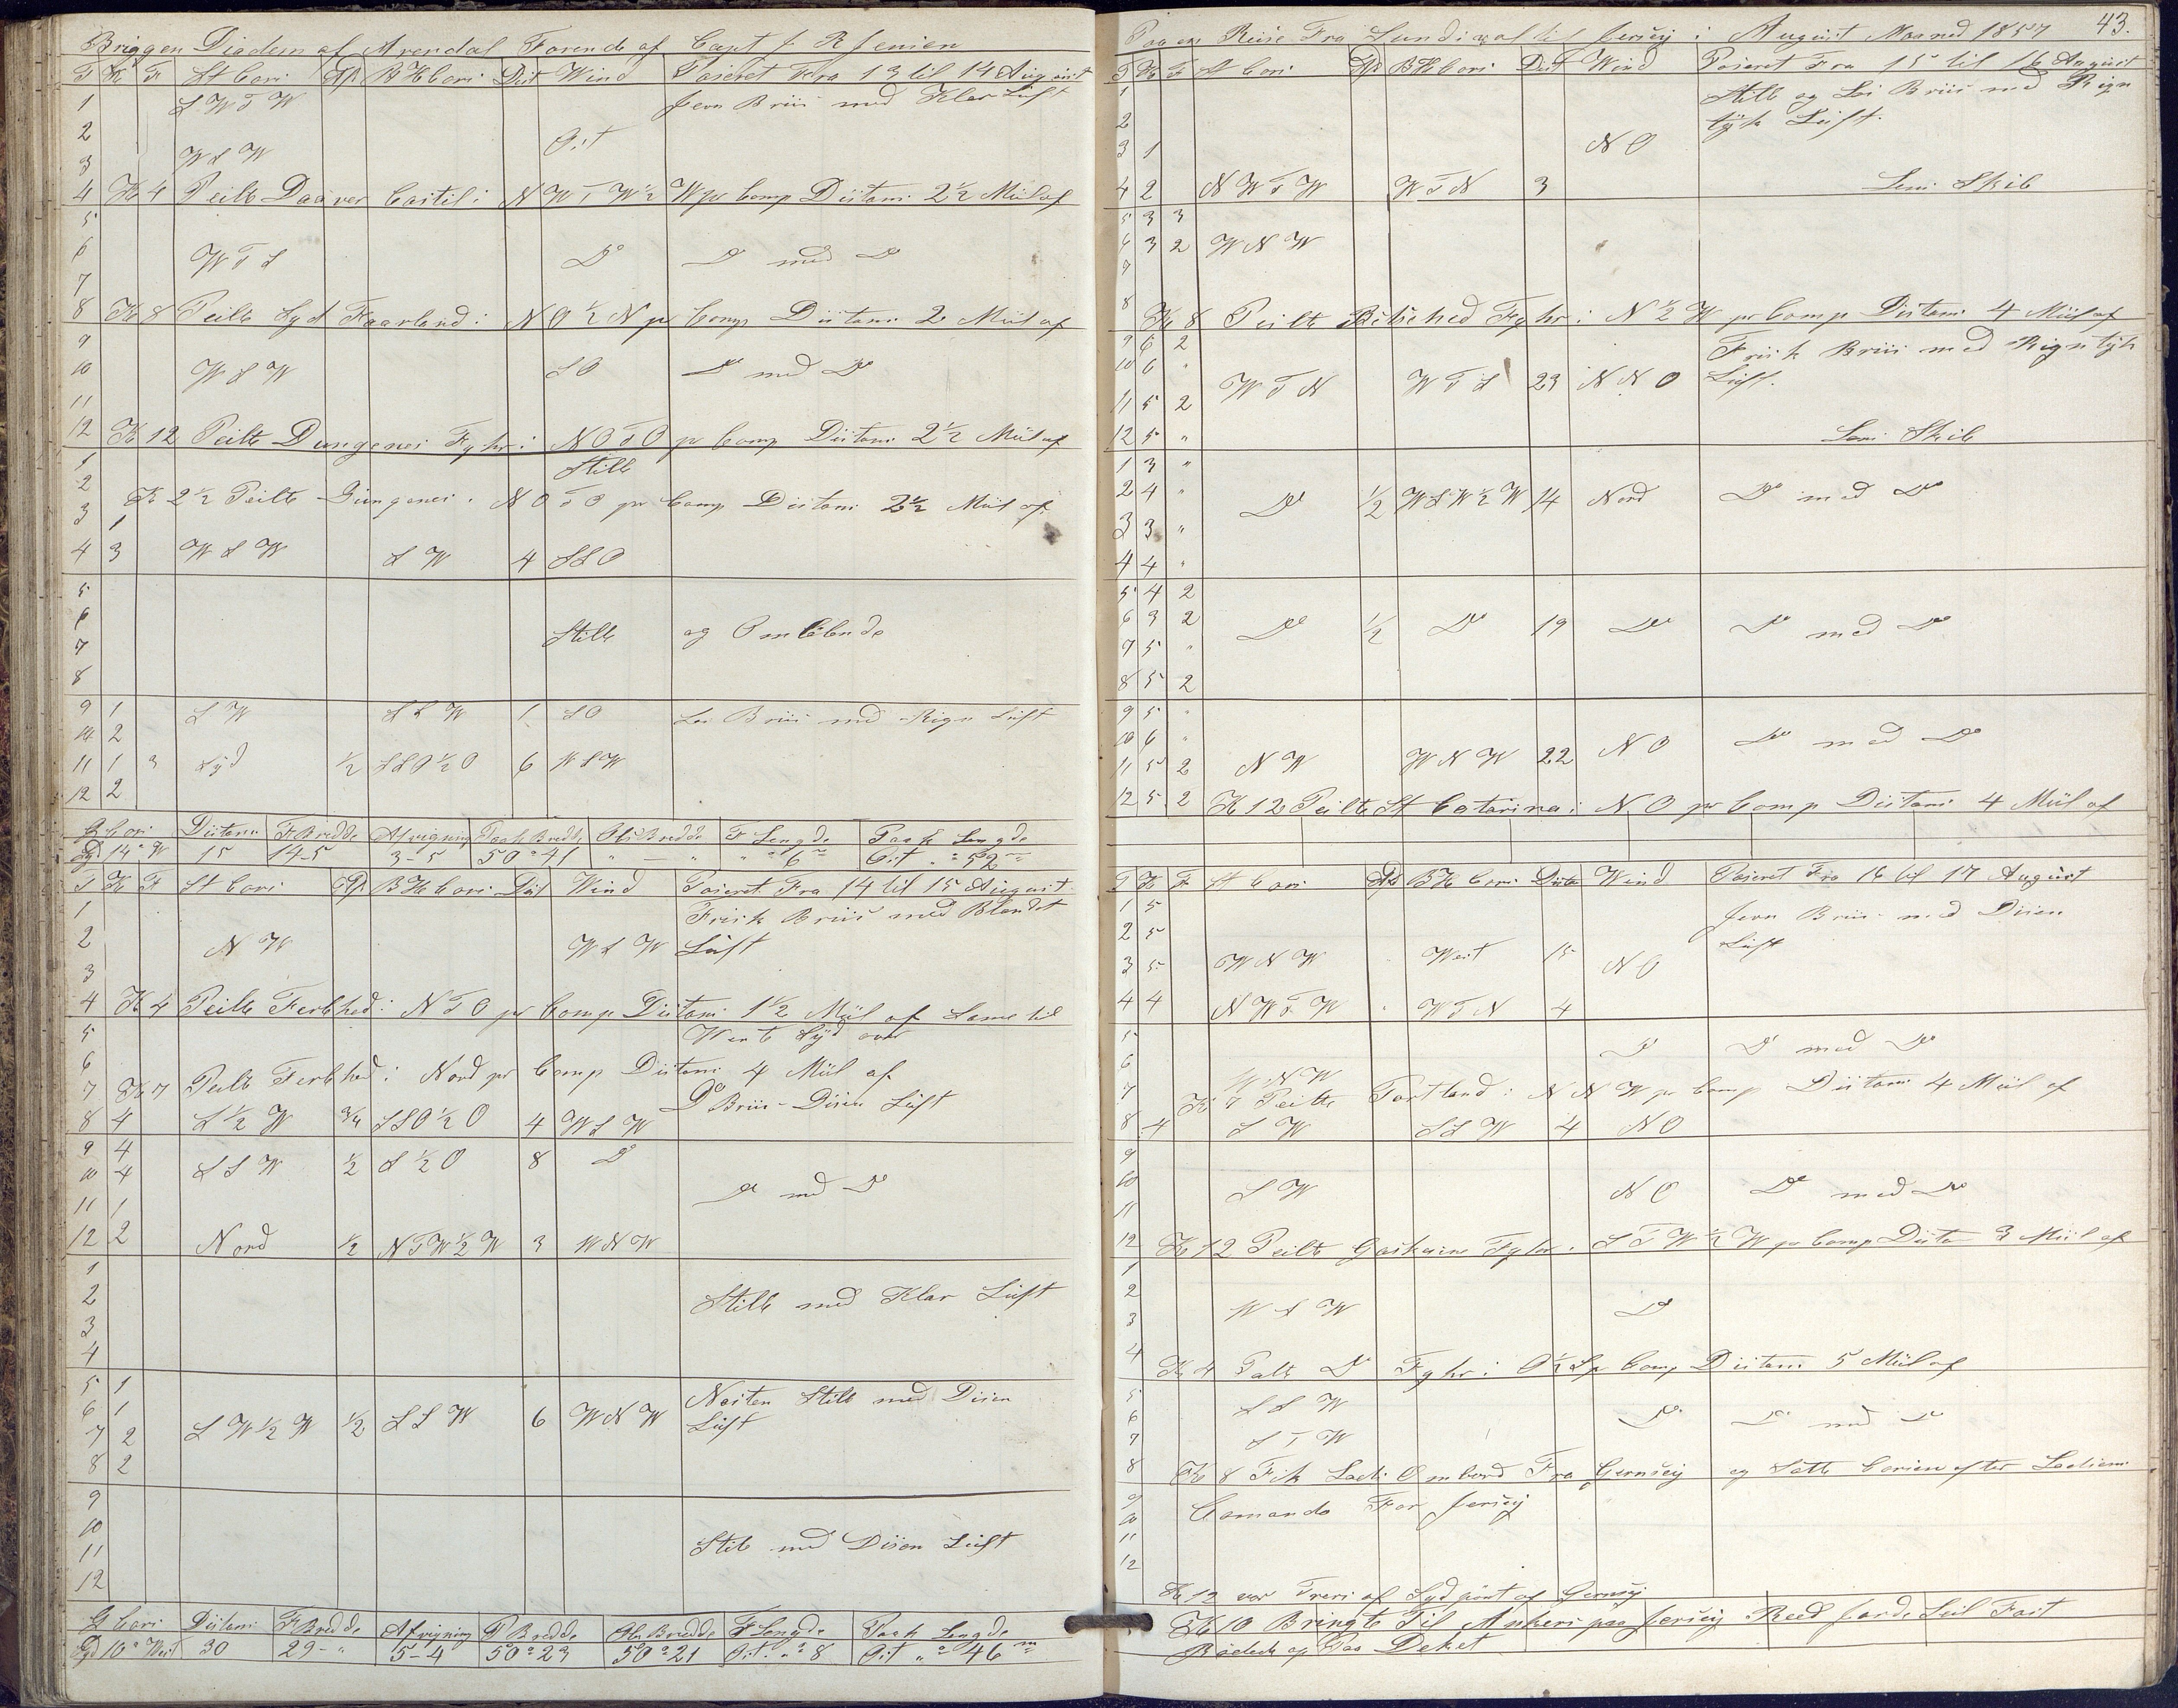 Briggen Diadem af Arendal Førende af Capt J. R Jensen
T K F St Cors Afd BH Cors Dist Wind Paseret Fra 13 til 14 August
1 S.W T W Jevn Briis med Klar Luft
2 Ost
3 W S W
4 Kl 4 Peilte Daaver Castil i N W T W ½ W pr Comp Distans 2½ Miil af
5
6 W T S Do Do med Do
7
8 Kl 8 Peilte Syd Faarland i N O ½ N pr Comp Distans 2 Miil af
9
10 W S W S O Do med Do
11
12 Kl 12 Peilte Dungenes Fyhr i N O T O pr Comp Distans 2½ Miil af
1 Stille
2 Kl 2½ Peilte Dungenes i N O T O pr Comp Distans 2½ Miil af
3 1
4 3 W S W S W 4 S S O
5
6 Stille og Omløbende
7
8
9 1 S W S S W 1 S O Lei Briis med Rign Luft
10 2
11 1 3 Syd ½ S S O ½ O 6 W S W
12 2
G Cors Distans F Bredde Afvigning Paak Bredde Obs Bredde F Lengde Paak Lengde
Syd 14° W 15 14-5 3-5 50°41 " — " " ° 6 Ost " ° 52
T K F St Cors Afd BH Cors Dist Wind Paseret Fra 14 til 15 August
1 Frisk Briis med Blandet
2 N W W S W Luft
3
4 Kl 4 Peilte Ferlehed i N T O pr Comp Distans 1½ Miil af Samt til
5 Wente Syd over
6
7 Kl 7 Peilte Ferlehed i Nord pr Comp Distans 4 Miil af
8 4 S ½ W ¾ S S O ½ O 4 W S W Do Briis - Diisen Luft
9 4
10 4 S S W ½ S ½ O 8 Do
11 1 Do med Do
12 2 Nord ½ N T W ½ W 3 W N W
1
2 Stille med Klar Luft
3
4
5 1 Nesten Stille med Diisen
6 1
7 2 S W ½ W ½ S S W 6 W N W Luft
8 2
9
10
11 Stile med Diisen Luft
12
G Cors Distans F Bredde Afvigning P Bredde Obs Bredde F Lengde Paak Lengde
Syd 10° West 30 29 - " 5-4 50°23 50°21 Ost " ° 8 Ost " ° 46 m
Paa en Reise Fra Sundsval til Jersey i August Maaned 1857 43.
T K F St Cors Afd BH Cors Dist Wind Paseret Fra 15 til 16 August
1 Stille og Lei Briis med Reign
2 tÿk Luft.
3 1 N O
4 2 N W T W W T N 3 Lens Skib
5 3 3
6 3 2 W N W
7
8 Kl 8 Peilte Betsehed Fyhr i N ½ W pr Comp Distans 4 Miil af
9 6 2 Frisk Briis med Rign tÿk
10 6 " W T N W T S 23 N N O Luft.
11 5 2
12 5 " Lens Skib
1 3 "
2 4 " Do ½ W S W ½ W 14 Nord Do med Do
3 3 "
4 4 "
5 4 2
6 3 2 Do ½ Do 19 Do Do med Do
7 5 "
8 5 2
9 5 "
10 6 " N O Do med Do
11 5 2 N W W N W 22
12 5 2 Kl 12 Peilte St Catarina i N O pr Comp Distans 4 Miil af
T K F St Cors Afd BH Cors Dista Wind Paseret Fra 16 til 17 August
1 5 Jevn Briis med Diisen
2 5 Luft
3 5 W N W West 15 N O
4 4 N W T W W T N 4
5 Do Do med Do
6 W N W
7 Kl 7 Peilte Portland i N N W pr Comp Distans 4 Miil af
8 4 S W S S W 4 N O
9
10 S W N O Do med Do
11
12 Kl 12 Peilte Gaskains Fyhr i S T W ½ W pr Comp Dista 3 Miil af
1
2
3 W S W Do
4 Kl 4 Palt Do Fyhr i O ½ S p Comp Distans 5 Miil af
5 S S W
6 Do Do med Do
7 S T W
8 Kl 8 Fik Lods Ombord Fra Gernsey og Satte Corsen efter Lodsens
9 Comando For Jersey
10
11
12
Kl 12 var Treri af Syd pønt af Gernsey
Kl 10 Bringte Til Ankers paa Jersey Reed Jorde Seil Fast
Deket